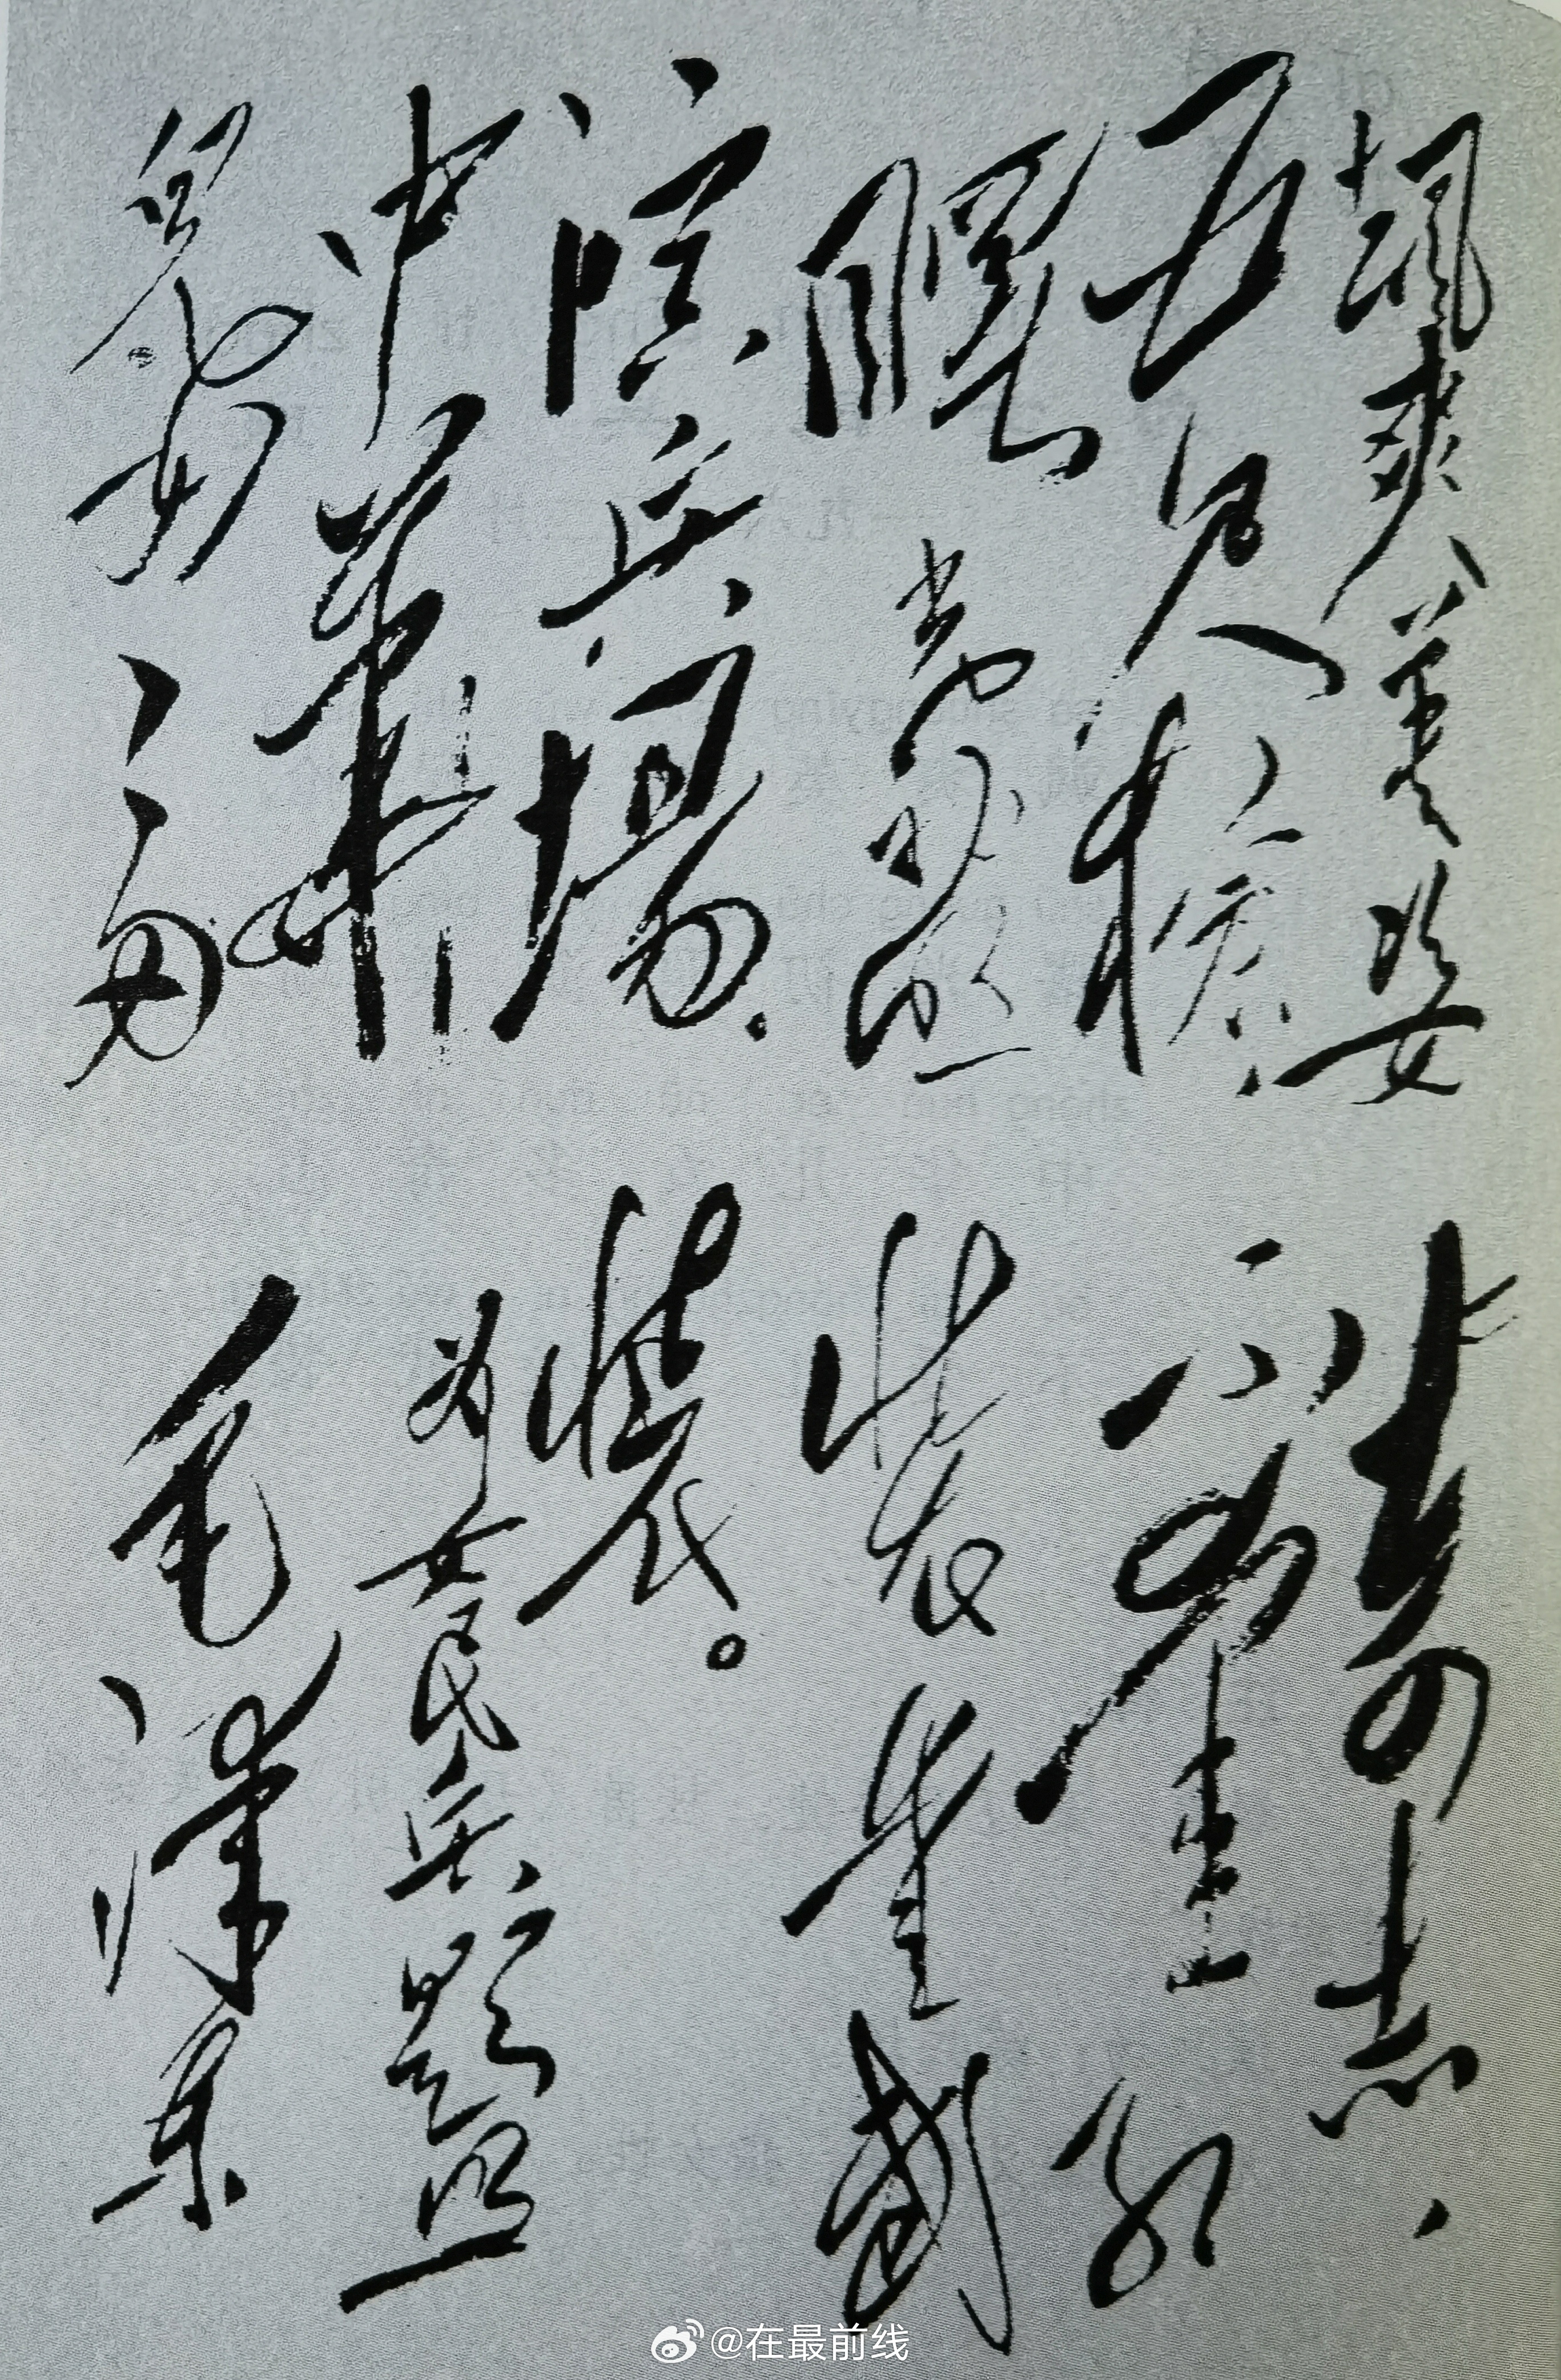 飒爽英姿
五尺枪、
曙光初照
演兵场.
中华
儿女多
奇志、
不爱红
装爱武
装。
为女民兵题照
毛泽东
@在最前线